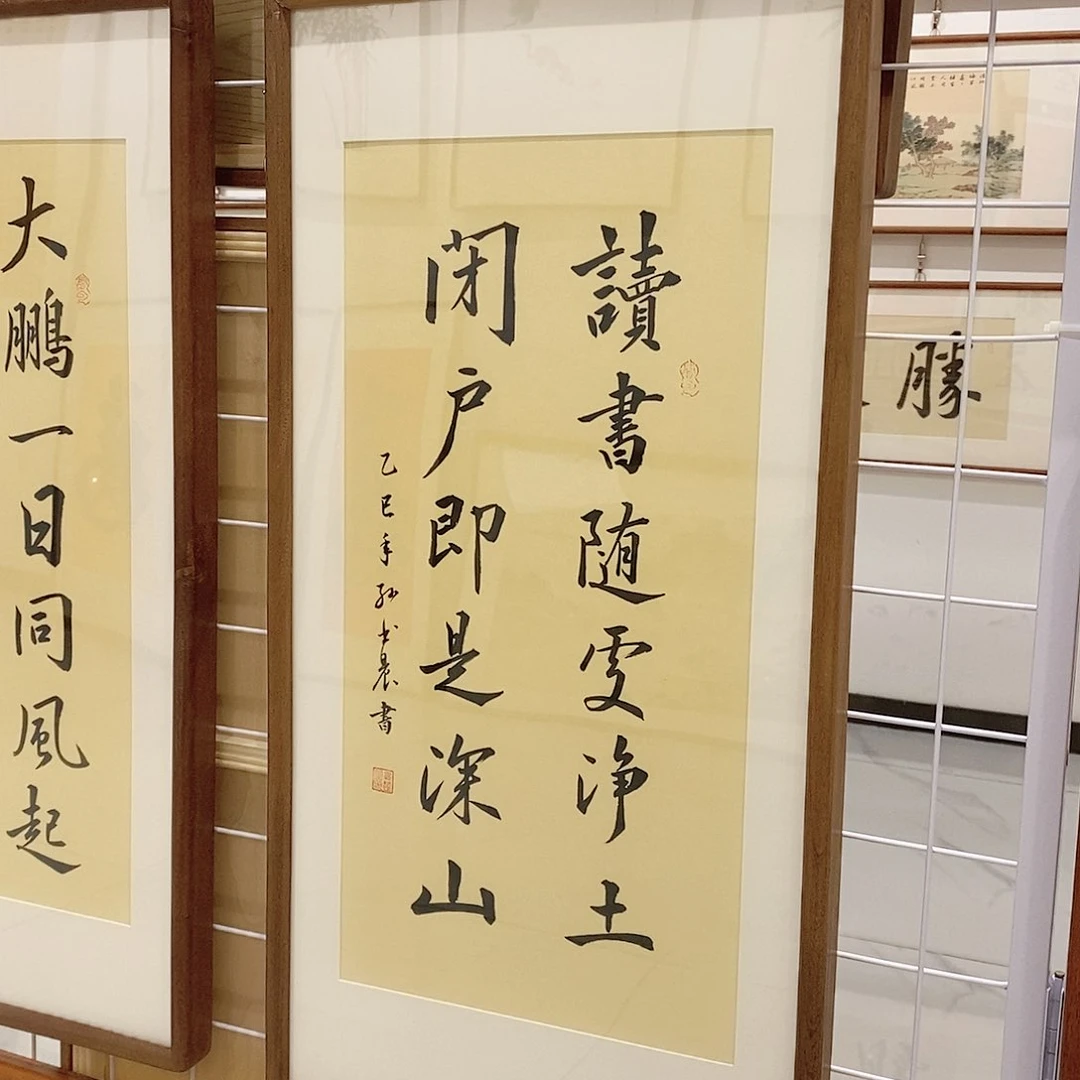 讀書随處净土
閉户即是深山
乙巳年孙书晨書
大鵬一日同風起
勝